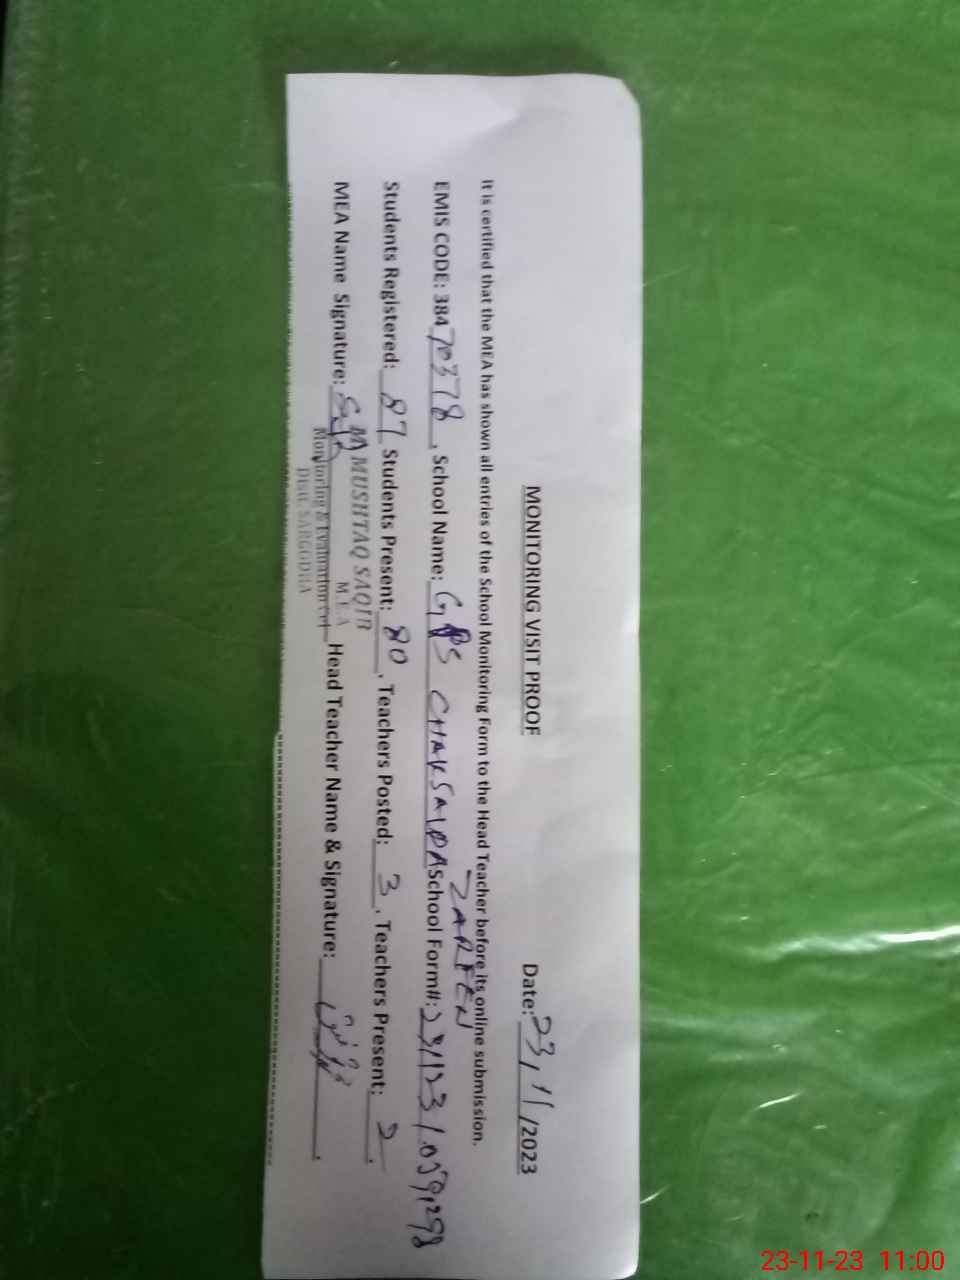 MONITORING VISIT PROOF
Date: 23/11/2023
It is certified that the MEA has shown all entries of the School Monitoring Form to the Head Teacher before its online submission.
EMIS CODE: 38470378, School Name: GPS CHAK SAIDA ZAREEN School Form#:
Students Registered: 87 Students Present: 80, Teachers Posted: 3, Teachers Present: 2.
MEA Name Signature: Head Teacher Name & Signature:
M MUSHTAQ SAQIB
M.E.A
Monitoring & Evaluation Cell
Distt. SARGODHA
23-11-23 11:00